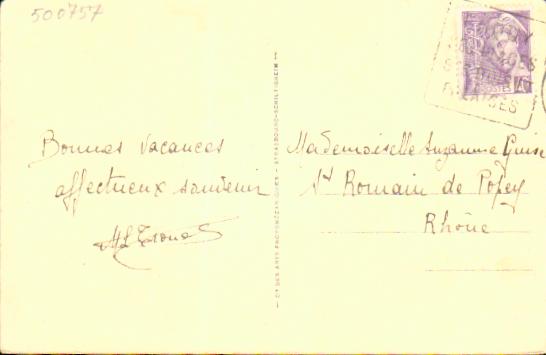 500757
Bonnes vacances
affectueux souvenir
Mademoiselle Suzanne
St Romain de Popey
Rhône
POSTES
Cie DES ARTS PHOTOMÉCANIQUES - STRASBOURG-SCHILTIGHEIM